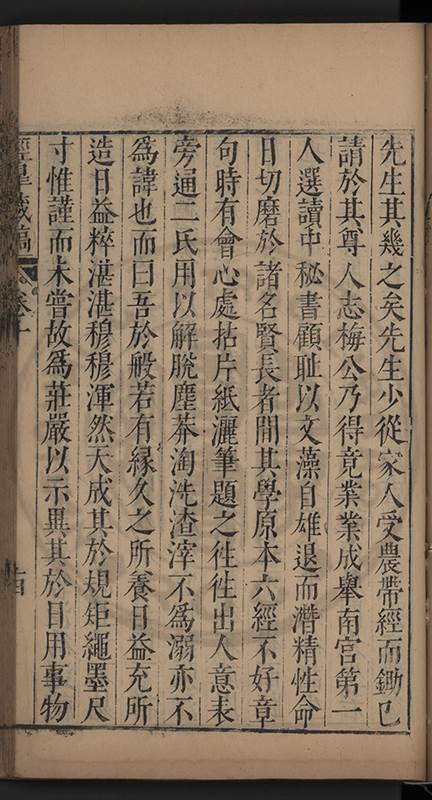 先生其幾之矣先生少從家人受農帶經而鋤已
請於其尊人志梅公乃得竟業業成舉南宮第一
人選讀中秘書顧耻以文藻自雄退而潛精性命
日切磨於諸名賢長者間其學原本六經不好章
句時有會心處拈片紙灑筆題之徃徃出人意表
旁通二氏用以解脫塵莽淘洗渣滓不為溺亦不
為諱也而曰吾於般若有緣久之所養日益充所
造日益粹湛湛穆穆渾然天成其於規矩繩墨尺
寸惟謹而未嘗故為莊嚴以示異其於日用事物
涇臯藏稿 卷十